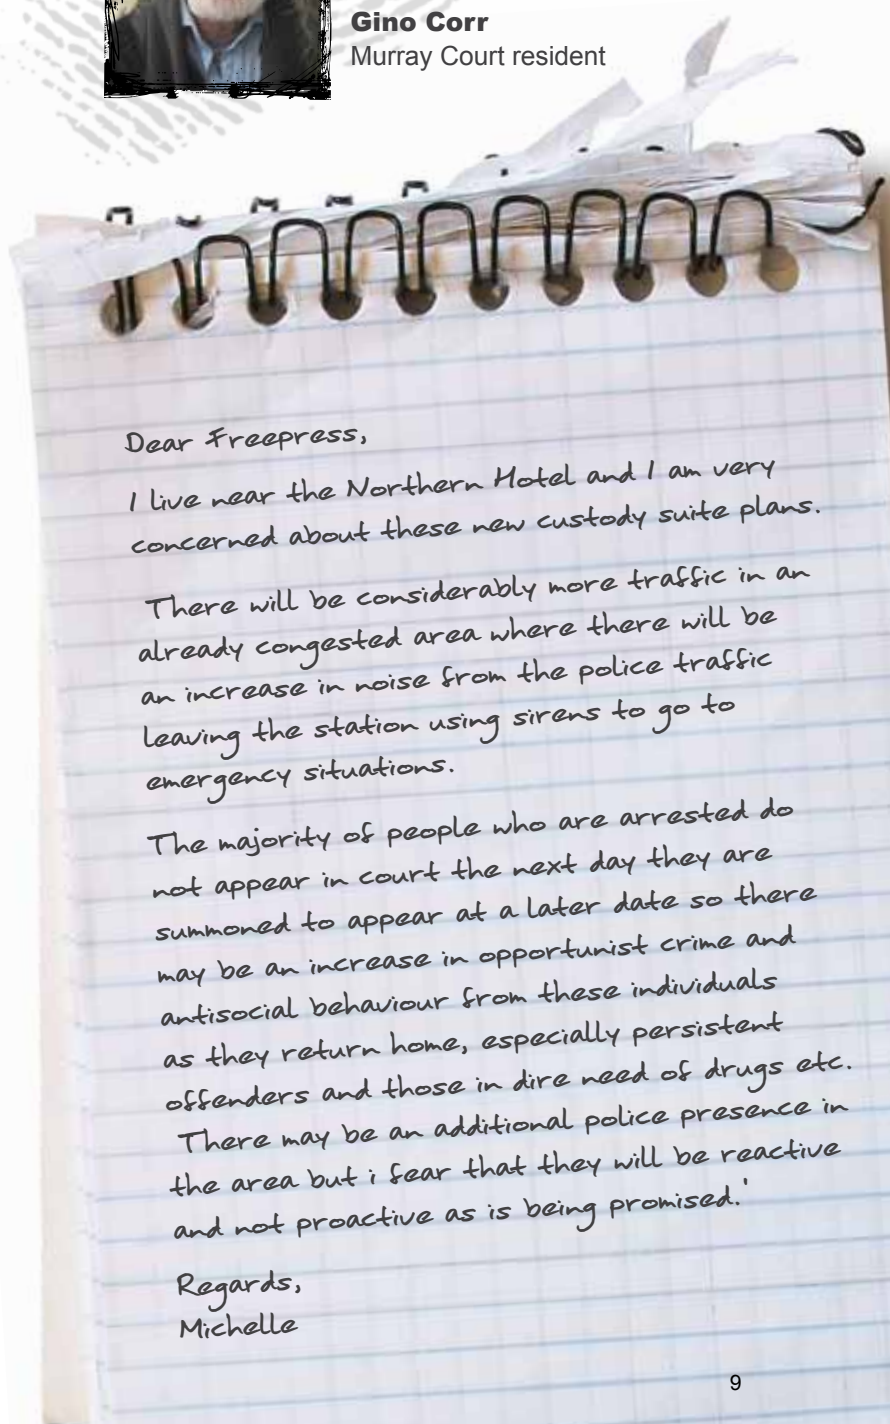 Gino Corr
Murray Court resident
Dear Freepress,
I live near the Northern Hotel and I am very
concerned about these new custody suite plans.
There will be considerably more traffic in an
already congested area where there will be
an increase in noise from the police traffic
leaving the station using sirens to go to
emergency situations.
The majority of people who are arrested do
not appear in court the next day they are
summoned to appear at a later date so there
may be an increase in opportunist crime and
antisocial behaviour from these individuals
as they return home, especially persistent
offenders and those in dire need of drugs etc.
There may be an additional police presence in
the area but i fear that they will be reactive
and not proactive as is being promised.'
Regards,
Michelle
9